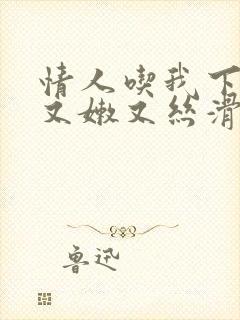 情人喫我下
又嫩又丝滑
鲁迅